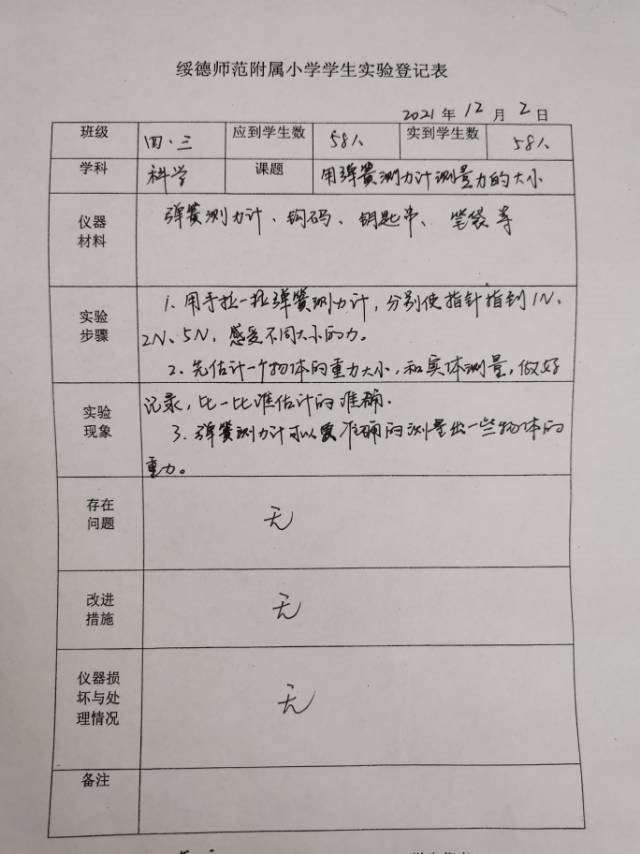 绥德师范附属小学学生实验登记表
2021年12月2日
班级 四·三 应到学生数 58人 实到学生数 58人
学科 科学 课题 用弹簧测力计测量力的大小
仪器材料 弹簧测力计、钩码、钥匙串、笔袋等
实验步骤 1.用手拉一拉弹簧测力计,分别使指针指到1N、
2N、5N,感受不同大小的力。
2.先估计一个物体的重力大小,和实体测量,做好
实验现象 记录,比一比谁估计的准确.
3.弹簧测力计可以准确的测量出一些物体的
重力。
存在问题 无
改进措施 无
仪器损坏与处理情况 无
备注